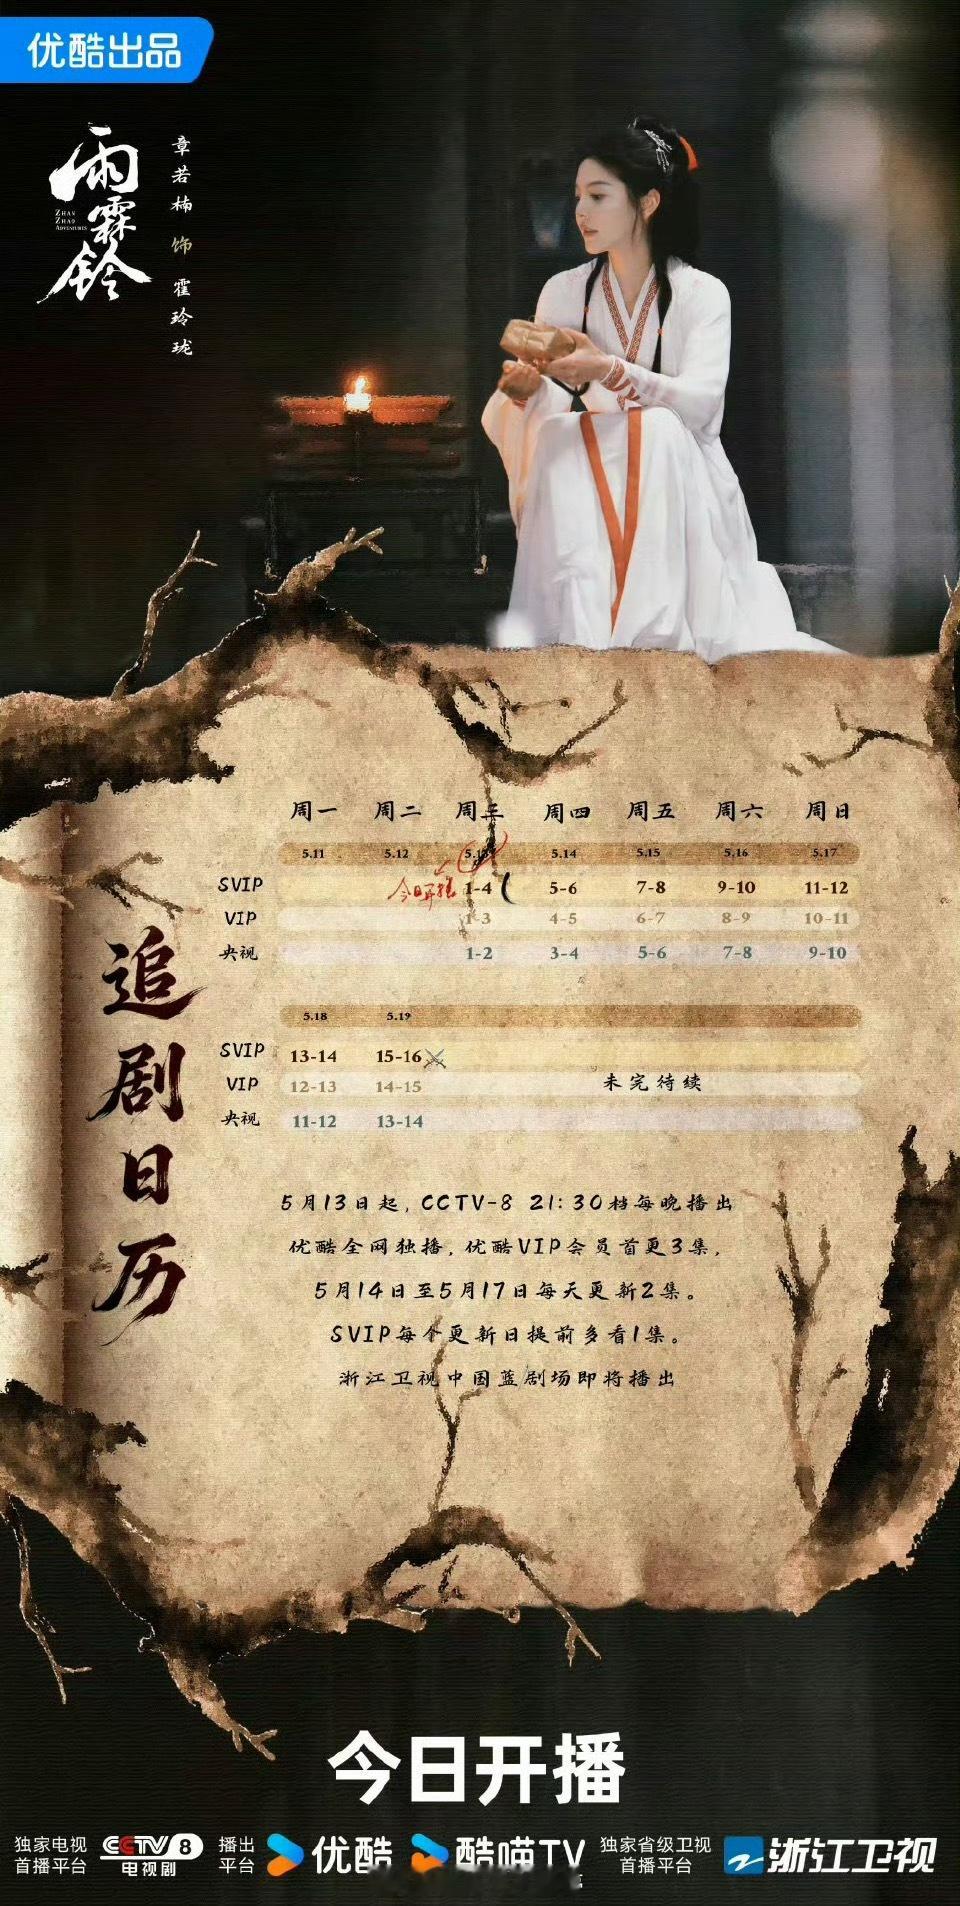 优酷出品
雨霖铃
ZHAN
ZHAO
ADVENTURES
章若楠 饰 霍玲珑
追剧日历
周一 周二 周三 周四 周五 周六 周日
5.11 5.12 5.13 5.14 5.15 5.16 5.17
今日开播
SVIP 1-4 5-6 7-8 9-10 11-12
VIP 1-3 4-5 6-7 8-9 10-11
央视 1-2 3-4 5-6 7-8 9-10
5.18 5.19
SVIP 13-14 15-16
VIP 12-13 14-15 未完待续
央视 11-12 13-14
5月13日起, CCTV-8 21:30档每晚播出
优酷全网独播, 优酷VIP会员首更3集,
5月14日至5月17日每天更新2集。
SVIP每个更新日提前多看1集。
浙江卫视中国蓝剧场即将播出
今日开播
独家电视首播平台 CCTV 8 电视剧
播出平台 优酷 酷喵TV
独家省级卫视首播平台 浙江卫视